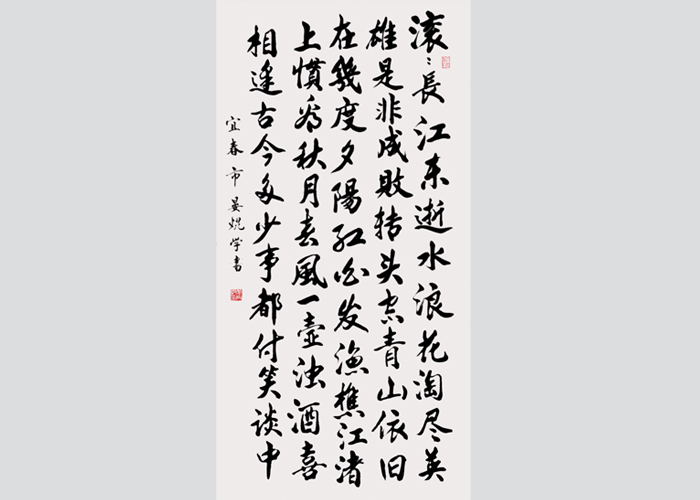 滚〻長江东逝水浪花淘尽英
雄是非成敗转头空青山依旧
在幾度夕陽红白发渔樵江渚
上慣看秋月春風一壶浊酒喜
相逢古今多少事都付笑谈中
宜春市晏焜学書